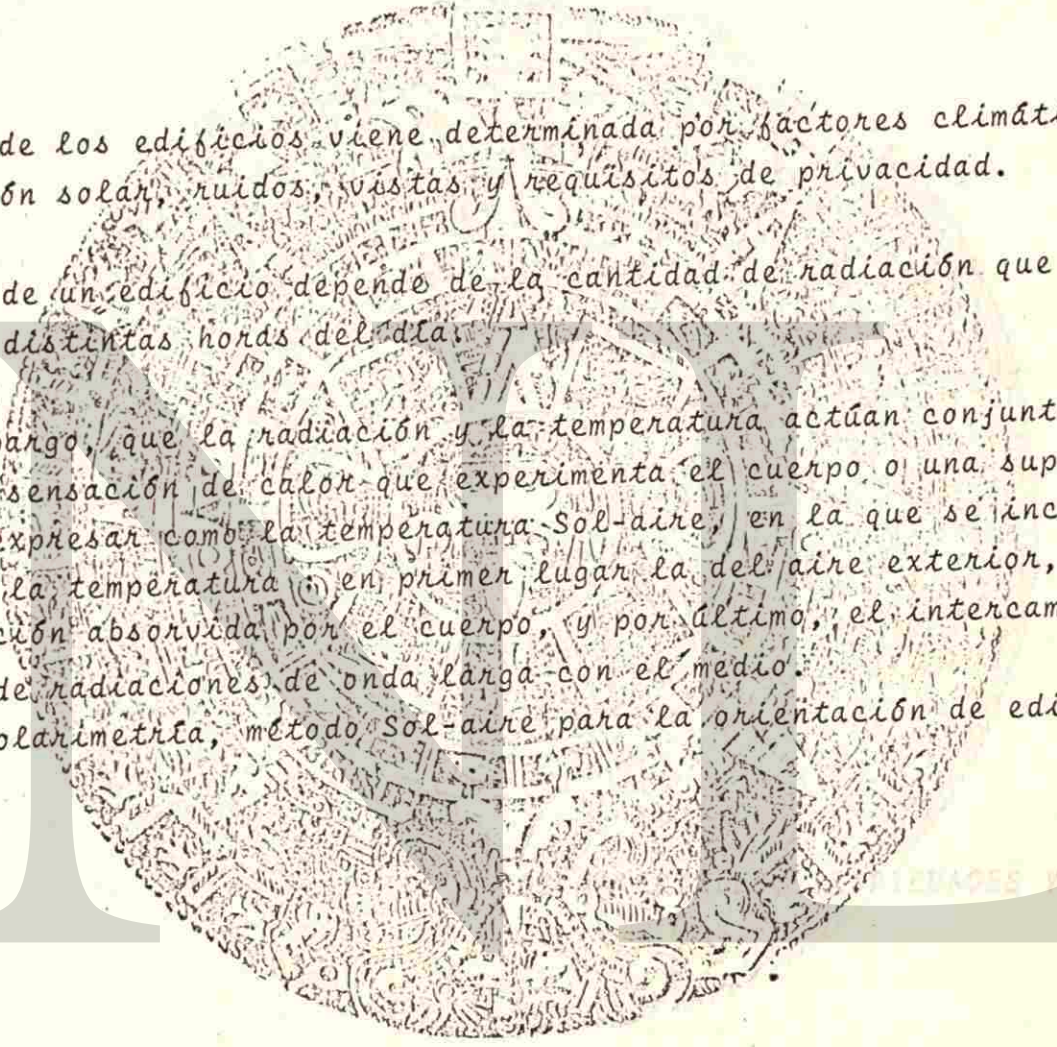 de los edificios viene determinada por factores climáti
ón solar, ruidos, vistas y requisitos de privacidad.
de un edificio depende de la cantidad de radiación que
distintas horas del día.
bargo, que la radiación y la temperatura actúan conjunt
sensación de calor que experimenta el cuerpo o una sup
expresar como la temperatura Sol-aire, en la que se inc
la temperatura : en primer lugar la del aire exterior,
ción absorvida por el cuerpo, y por último, el intercam
de radiaciones de onda larga con el medio.
olarimetría, método Sol-aire para la orientación de edi